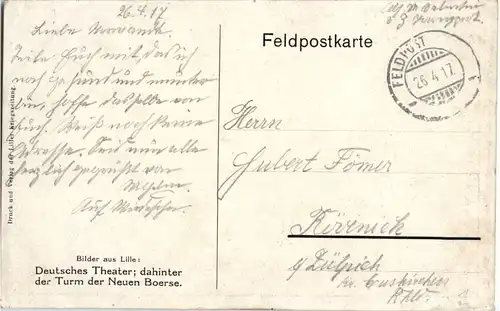 26.4.17
Liebe Verwandte
Teile Euch mit, das ich
noch gesund und munter
bin, hoffe dasselbe von
Euch. Weiß noch keine
Adresse. Seid nun alle
herzlich gegrüßt von
Wilhelm.
Auf Wiedersehen.
Feldpostkarte
FELDPOST
26 4.17.
Herrn
Hubert Fömer
Rövenich
b/ Zülpich
Kr. Euskirchen
Rhld.
Druck und Verlag der Liller Kriegszeitung.
Bilder aus Lille:
Deutsches Theater; dahinter
der Turm der Neuen Boerse.